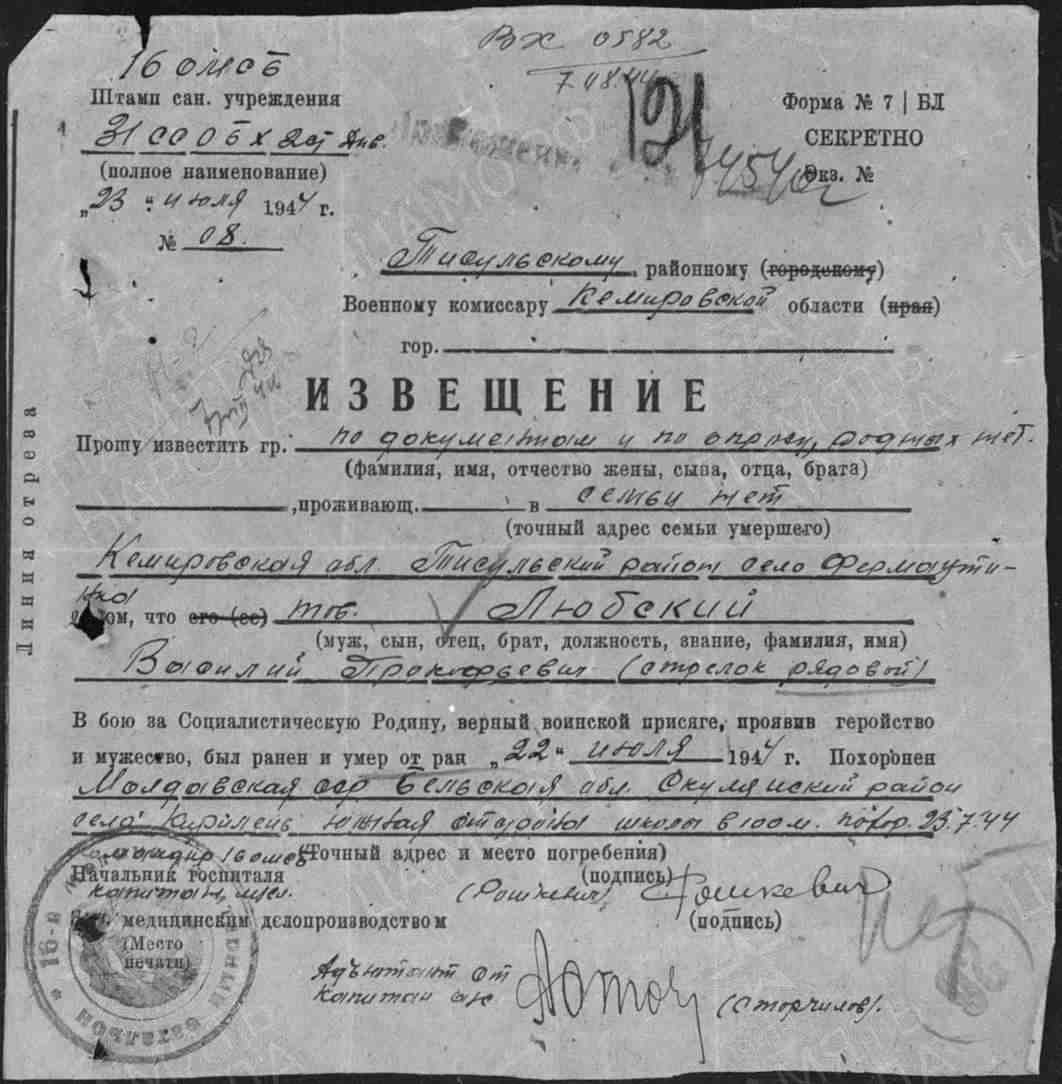 Вх 0582
7.08.44
16 омсб
Штамп сан. учреждения
Форма № 7 | БЛ
121
СЕКРЕТНО
(полное наименование)
Экз. №
„23" июля 1944 г.
№ 08.
Тисульскому районному (городскому)
Военному комиссару Кемировской области (края)
гор.
ИЗВЕЩЕНИЕ
Прошу известить гр. по документам и по опросу, родных нет.
(фамилия, имя, отчество жены, сына, отца, брата)
,проживающ. в семьи нет
(точный адрес семьи умершего)
Кемировская обл. Тисульский район село
том, что его (ее) тов. Любский
(муж, сын, отец, брат, должность, звание, фамилия, имя)
Василий Прокофьевич (стрелок рядовой)
В бою за Социалистическую Родину, верный воинской присяге, проявив геройство
и мужество, был ранен и умер от ран „22" июля 1944 г. Похоронен
Молдавская сср Бельская обл. Скулянский район
село южная сторона школы в 100 м. похор. 23.7.44
(Точный адрес и место погребения)
командир 16 омсб
Начальник госпиталя (подпись)
капитан (Рошкевич) Рошкевич
медицинским делопроизводством (подпись)
(Место
печати)
Адъютант
капитан (Сторчилов).
нет
Линия отреза